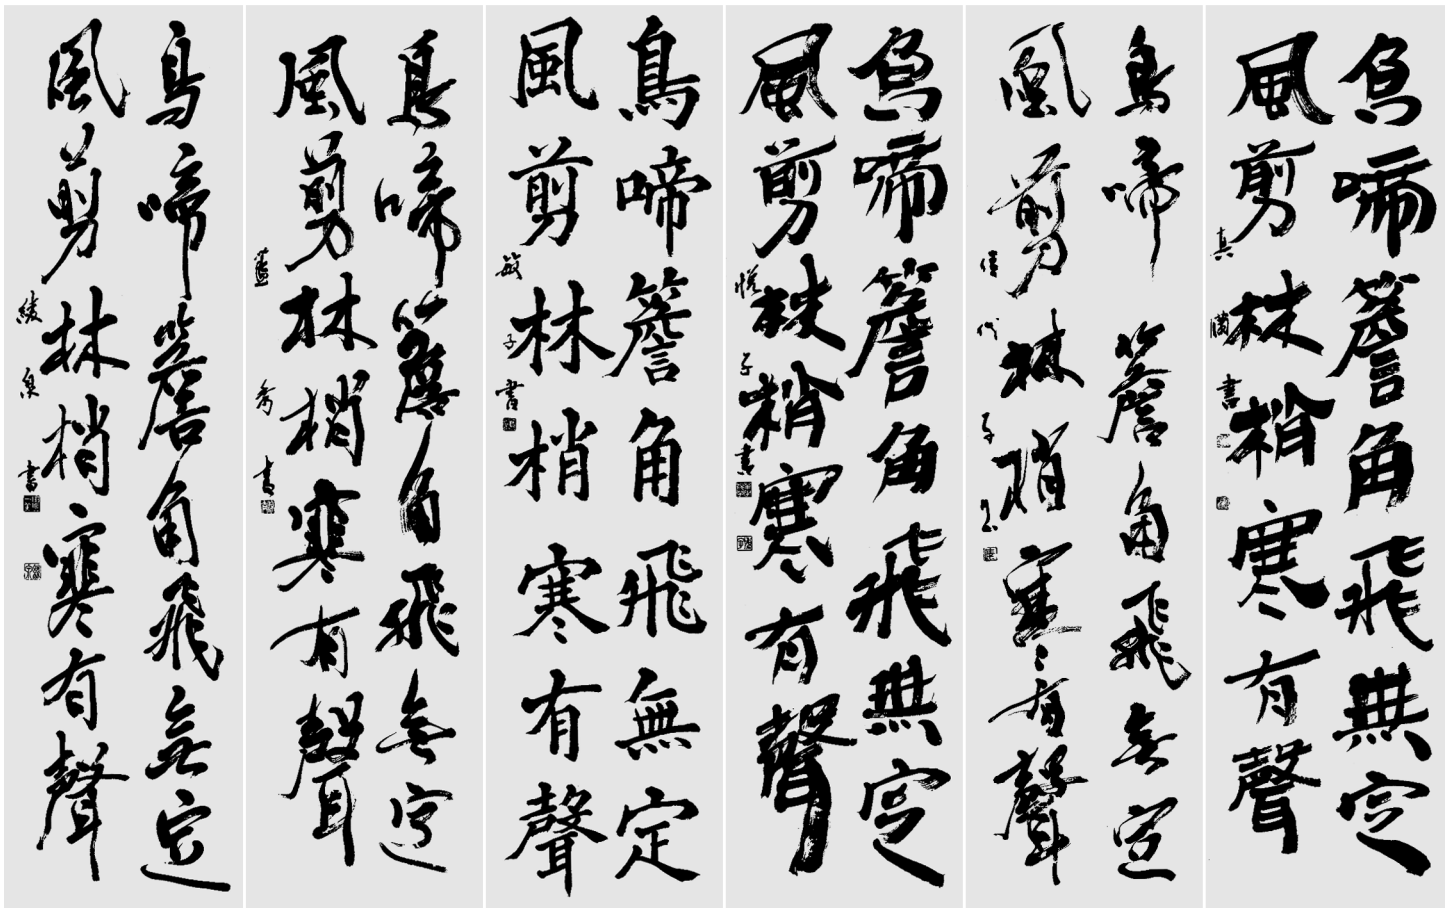 鳥啼簷角飛無定
風剪林梢寒有聲
真
書
鳥啼簷角飛無定
風剪林梢寒有聲
信代子
鳥啼簷角飛無定
風剪林梢寒有聲
悦子書
鳥啼簷角飛無定
風剪林梢寒有聲
敏子書
鳥啼簷角飛無定
風剪林梢寒有聲
藍秀書
鳥啼簷角飛無定
風剪林梢寒有聲
綾泉書